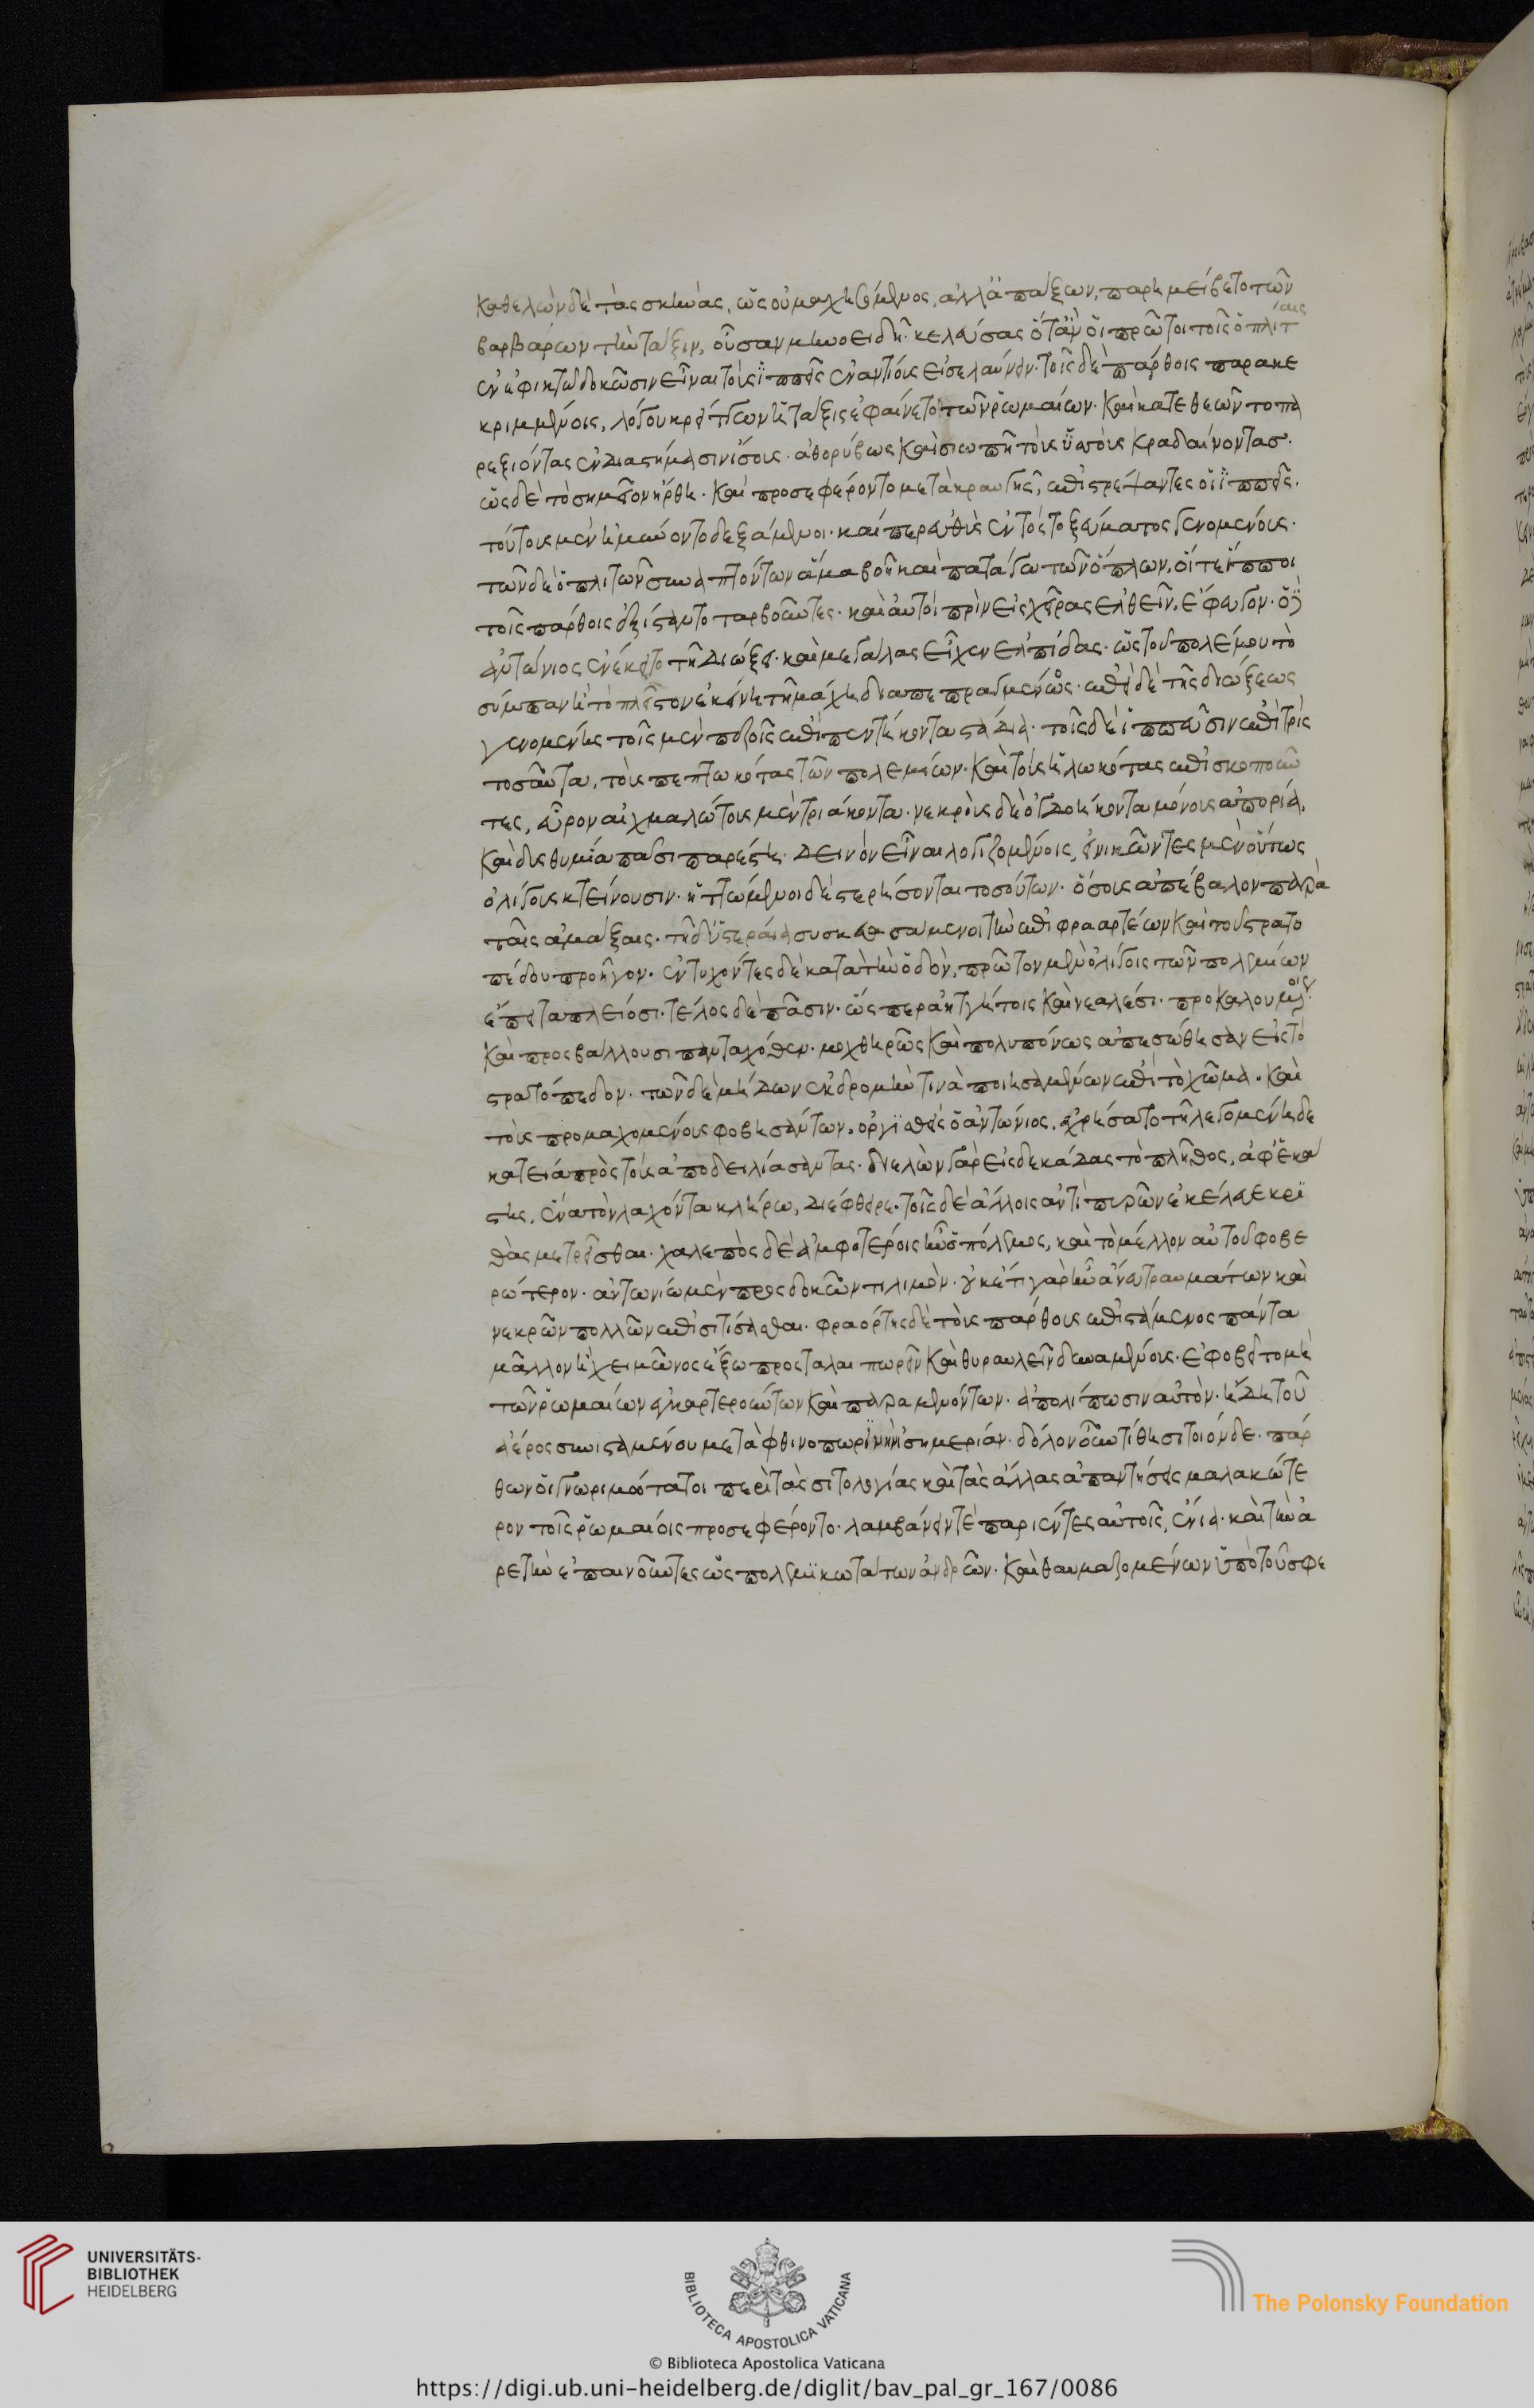 καθελὼν δὲ τὰς σκηνάς, ὡς οὐ μαχησόμενος, ἀλλ' ἀπάξων, παρημείβετο τῶν
βαρβάρων τὴν τάξιν, οὖσαν μηνοειδῆ· κελεύσας ὅταν οἱ πρῶτοι τοῖς ὁπλίταις
ἐν ἐφικτῶ δοκῶσιν εἶναι τοὺς ἱππεῖς ἐναντίους εἰσελαύνειν· τοῖς δὲ πάρθοις παρακε
κριμμένοις, λόγου κρείττων ἡ τάξις ἐφαίνετο τῶν ῥωμαίων· καὶ κατεθεῶντο πα
ρεξιόντας ἐν διαστήμασιν ἴσοις· ἀθορύβως καὶ σιωπῆ τοὺς ὑσσοὺς κραδαίνοντας·
ὡς δὲ τὸ σημεῖον ἤρθη· καὶ προσεφέροντο μετὰ κραυγῆς, ἐπιστρέψαντες οἱ ἱππεῖς·
τούτους μὲν ἠμύνοντο δεξάμενοι· καίπερ εὐθὺς ἐντὸς τοξεύματος γενομένους·
τῶν δὲ ὁπλιτῶν συναπτόντων ἅμα βοῆ καὶ πατάγω τῶν ὅπλων, οἵ τε ἵπποι
τοῖς πάρθοις ἐξίσταντο ταρβοῦντες· καὶ αὐτοὶ πρὶν εἰς χεῖρας ἐλθεῖν, ἔφευγον· ὁ δὲ
ἀντώνιος ἐνέκειτο τῆ διώξει· καὶ μεγάλας εἶχεν ἐλπίδας· ὡς τοῦ πολέμου τὸ
σύμπαν ἢ τὸ πλεῖστον ἐκείνη τῆ μάχη διαπεπραγμένος· ἐπεὶ δὲ τῆς διώξεως
γενομένης τοῖς μὲν πεζοῖς ἐπὶ πεντήκοντα στάδια· τοῖς δὲ ἱππεῦσιν ἐπὶ τρὶς
τοσαῦτα, τοὺς πεπτωκότας τῶν πολεμίων· καὶ τοὺς ἡλωκότας ἐπισκοποῦν
τες, εὗρον αἰχμαλώτους μὲν τριάκοντα· νεκροὺς δὲ ὀγδοήκοντα μόνους ἀπορία,
καὶ δυσθυμία πᾶσι παρέστη· δεινὸν εἶναι λογιζομένοις, εἰ νικῶντες μὲν οὕτως
ὀλίγους κτείνουσιν· ἡττώμενοι δὲ στερήσονται τοσούτων· ὅσους ἀπέβαλον παρὰ
ταῖς ἁμάξαις· τῆ δ' ὑστεραία συσκευασάμενοι τὴν ἐπὶ φραάρτων καὶ τοῦ στρατο
πέδου προῆγον· ἐντυχόντες δὲ κατὰ τὴν ὁδὸν, πρῶτον μὲν ὀλίγοις τῶν πολεμίων
ἔπειτα πλείοσι· τέλος δὲ πᾶσιν· ὥσπερ ἀηττήτοις καὶ νεαλέσι· προκαλουμένοις
καὶ προσβάλλουσι πανταχόθεν· μοχθηρῶς καὶ πολυπόνως ἀπεσώθησαν εἰς τὸ
στρατόπεδον· τῶν δὲ μήδων ἐκδρομήν τινα ποιησαμένων ἐπὶ τὸ χῶμα· καὶ
τοὺς προμαχομένους φοβησάντων, ὀργισθεὶς ὁ ἀντώνιος, ἐχρήσατο τῆ λεγομένη δε
κατεία πρὸς τοὺς ἀποδειλιάσαντας· διελὼν γὰρ εἰς δεκάδας τὸ πλῆθος, ἀφ' ἑκά
στης, ἕνα τὸν λαχόντα κλήρω, διέφθειρε· τοῖς δὲ ἄλλοις ἀντὶ πυρῶν ἐκέλευε κρι
θὰς μετρεῖσθαι· χαλεπὸς δὲ ἀμφοτέροις ἦν ὁ πόλεμος, καὶ τὸ μέλλον αὐτοῦ φοβε
ρώτερον· ἀντωνίω μὲν προσδοκῶντι λιμὸν· οὐκέτι γὰρ ἦν ἄνευ τραυμάτων καὶ
νεκρῶν πολλῶν ἐπισιτίσασθαι· φραόρτης δὲ τοὺς πάρθους ἐπιστάμενος πάντα
μᾶλλον ἢ χειμῶνος ἔξω προσταλαιπωρεῖν καὶ θυραυλεῖν δυναμένους· ἐφοβεῖτο μὴ
τῶν ῥωμαίων ἐγκαρτερούντων καὶ παραμενόντων· ἀπολίπωσιν αὐτὸν· ἤδη τοῦ
ἀέρος συνισταμένου μετὰ φθινοπωρινὴν ἰσημερίαν· δόλον οὖν τίθησι τοιόνδε· πάρ
θων οἱ γνωριμώτατοι περὶ τὰς σιτολογίας καὶ τὰς ἄλλας ἀπαντήσεις μαλακώτε
ρον τοῖς ῥωμαίοις προσεφέροντο· λαμβάνειν τὲ παριέντες αὐτοῖς, ἔνια· καὶ τὴν ἀ
ρετὴν ἐπαινοῦντες ὡς πολεμικωτάτων ἀνδρῶν· καὶ θαυμαζομένων ὑπὸ τοῦ σφε
UNIVERSITÄTS-
BIBLIOTHEK
HEIDELBERG
BIBLIOTECA APOSTOLICA VATICANA
© Biblioteca Apostolica Vaticana
The Polonsky Foundation
https://digi.ub.uni-heidelberg.de/diglit/bav_pal_gr_167/0086